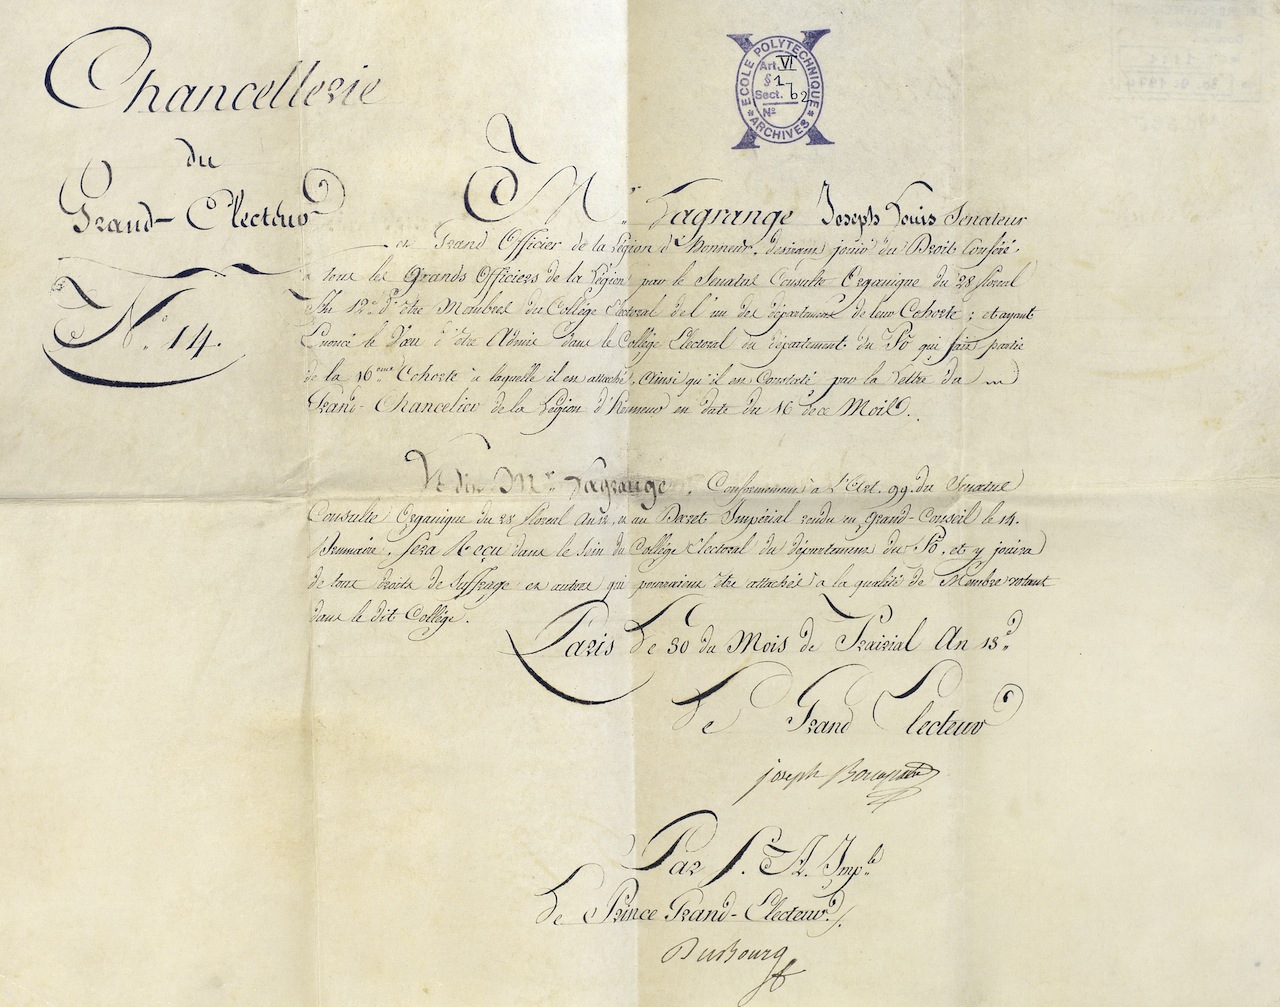 Chancellerie
du
Grand-Electeur
N.° 14.
ECOLE POLYTECHNIQUE
Art. VI
§ 1
Sect. b2
N°
* ARCHIVES *
M.r Lagrange Joseph Louis Senateur
et Grand Officier de la Légion d'honneur, desirant jouir du Droit Conféré
a tous les Grands Officiers de la Légion par le Senatus Consulte Organique du 28 floreal
An 12.e d'être Membres du Collège Electoral de l'un des départemens de leur Cohorte ; et ayant
Enoncé le Voeu d'être Admis dans le Collège Electoral du département du Pô qui fait partie
de la 16eme Cohorte a laquelle il est attaché, ainsi qu'il est Constaté par la Lettre du
Grand-Chancelier de la Légion d'Honneur en date du 16 de ce Mois.
Le dit Mr. Lagrange, Conformement a l'Art. 99. du Senatus
Consulte Organique du 28 floreal An 12, et au Decret Impérial rendu en Grand-Conseil le 14.
Brumaire, Sera Reçu dans le Sein du Collège Electoral du département du Pô, et y jouira
de tous droits de Suffrage et autres qui pourraient être attachés a la qualité de Membre votant
dans le dit Collège.
Paris Le 30 du Mois de Prairial An 13.e
Le Grand Electeur
joseph Bonaparte
Par S. A. Imp.le
Le Prince Grand-Electeur.
DuBourg